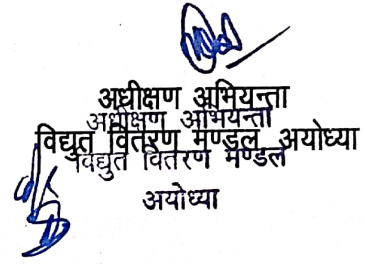 अधीक्षण अभियन्ता
अधीक्षण अभियन्ता
विद्युत वितरण मण्डल अयोध्या
विद्युत वितरण मण्डल
अयोध्या